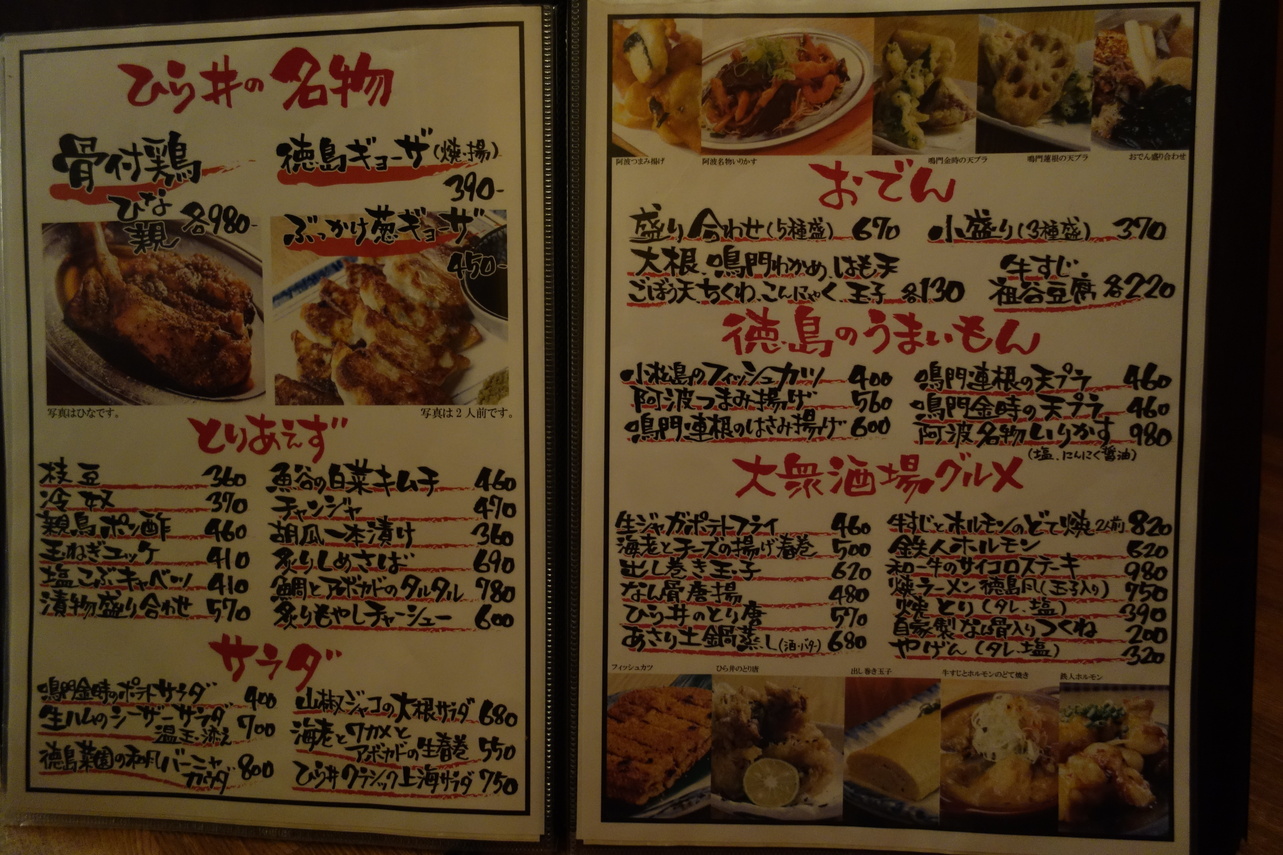 ひら井の名物
骨付鶏
ひな
親 各980-
徳島ギョーザ(焼・揚)
390-
ぶっかけ葱ギョーザ
450-
写真はひなです。
写真は2人前です。
とりあえず
枝豆 360
冷奴 370
親鳥ポン酢 460
玉ねぎユッケ 410
塩こぶキャベツ 410
漬物盛り合わせ 570
魚谷の白菜キムチ 460
チャンジャ 470
胡瓜一本漬け 360
炙りしめさば 690
鯛とアボガドのタルタル 780
炙りもやしチャーシュー 600
サラダ
鳴門金時のポテトサラダ 400
生ハムのシーザーサラダ 700
温玉添え
徳島菜園の和風バーニャ
カウダ 800
山椒ジャコの大根サラダ 680
海老とワカメと
アボガドの生春巻 550
ひら井クラシック上海サラダ 750
阿波つまみ揚げ
阿波名物いりかす
鳴門金時の天プラ
鳴門蓮根の天プラ
おでん盛り合わせ
おでん
盛り合わせ(5種盛) 670
小盛り(3種盛) 370
大根、鳴門わかめ、はも天
ごぼう天、ちくわ、こんにゃく、玉子 各130
牛すじ
祖谷豆腐 各220
徳島のうまいもん
小松島のフィッシュカツ 400
阿波つまみ揚げ 560
鳴門蓮根のはさみ揚げ 600
鳴門連根の天プラ 460
鳴門金時の天プラ 460
阿波名物いりかす 980
(塩、にんにく醤油)
大衆酒場グルメ
生ジャガポテトフライ 460
海老とチーズの揚げ春巻 500
出し巻き玉子 620
なん骨唐揚 480
ひら井のとり唐 570
あさり土鍋蒸し(酒・バター) 680
牛すじとホルモンのどて焼 2人前 820
鉄人ホルモン 620
和一牛のサイコロステーキ 980
焼ラーメン徳島風(玉子入り) 750
焼とり(タレ、塩) 390
自家製なん骨入りつくね 200
やげん(タレ、塩) 320
フィッシュカツ
ひら井のとり唐
出し巻き玉子
牛すじとホルモンのどて焼き
鉄人ホルモン